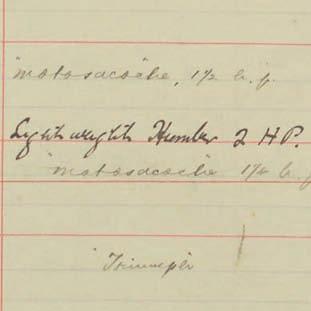 "motosacoche, 1½ h.p.
Lightweight Humber 2 HP.
"motosacoche 1¼ h.p
"Triumph